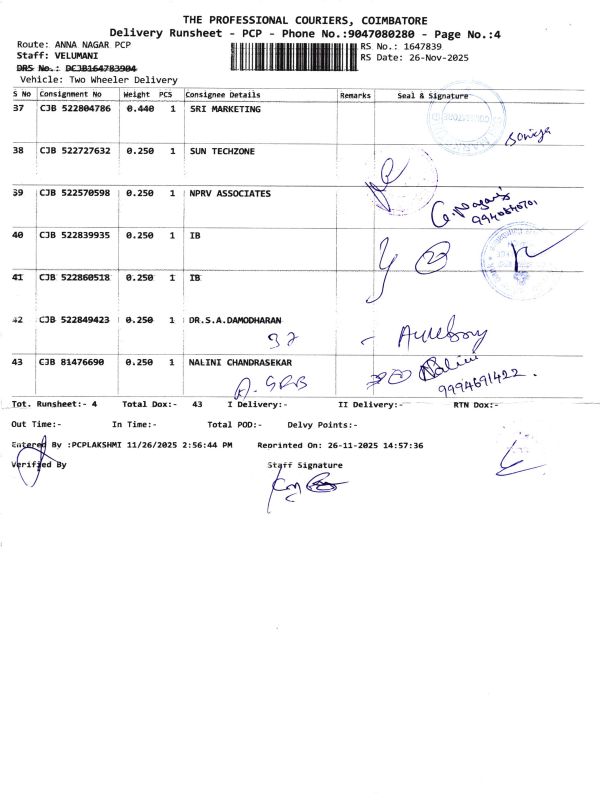 THE PROFESSIONAL COURIERS, COIMBATORE
Delivery Runsheet - PCP - Phone No.:9047080280 - Page No.:4
Route: ANNA NAGAR PCP RS No.: 1647839
Staff: VELUMANI RS Date: 26-Nov-2025
DRS No.: DCJB164783904
Vehicle: Two Wheeler Delivery
S No Consignment No Weight PCS Consignee Details Remarks Seal & Signature
37 CJB 522804786 0.440 1 SRI MARKETING
38 CJB 522727632 0.250 1 SUN TECHZONE
39 CJB 522570598 0.250 1 NPRV ASSOCIATES
40 CJB 522839935 0.250 1 IB
41 CJB 522860518 0.250 1 IB
42 CJB 522849423 0.250 1 DR.S.A.DAMODHARAN
43 CJB 81476690 0.250 1 NALINI CHANDRASEKAR
Nalini
9994691422.
Tot. Runsheet:- 4 Total Dox:- 43 I Delivery:- II Delivery:- RTN Dox:-
Out Time:- In Time:- Total POD:- Delvy Points:-
Entered By :PCPLAKSHMI 11/26/2025 2:56:44 PM Reprinted On: 26-11-2025 14:57:36
Verified By Staff Signature